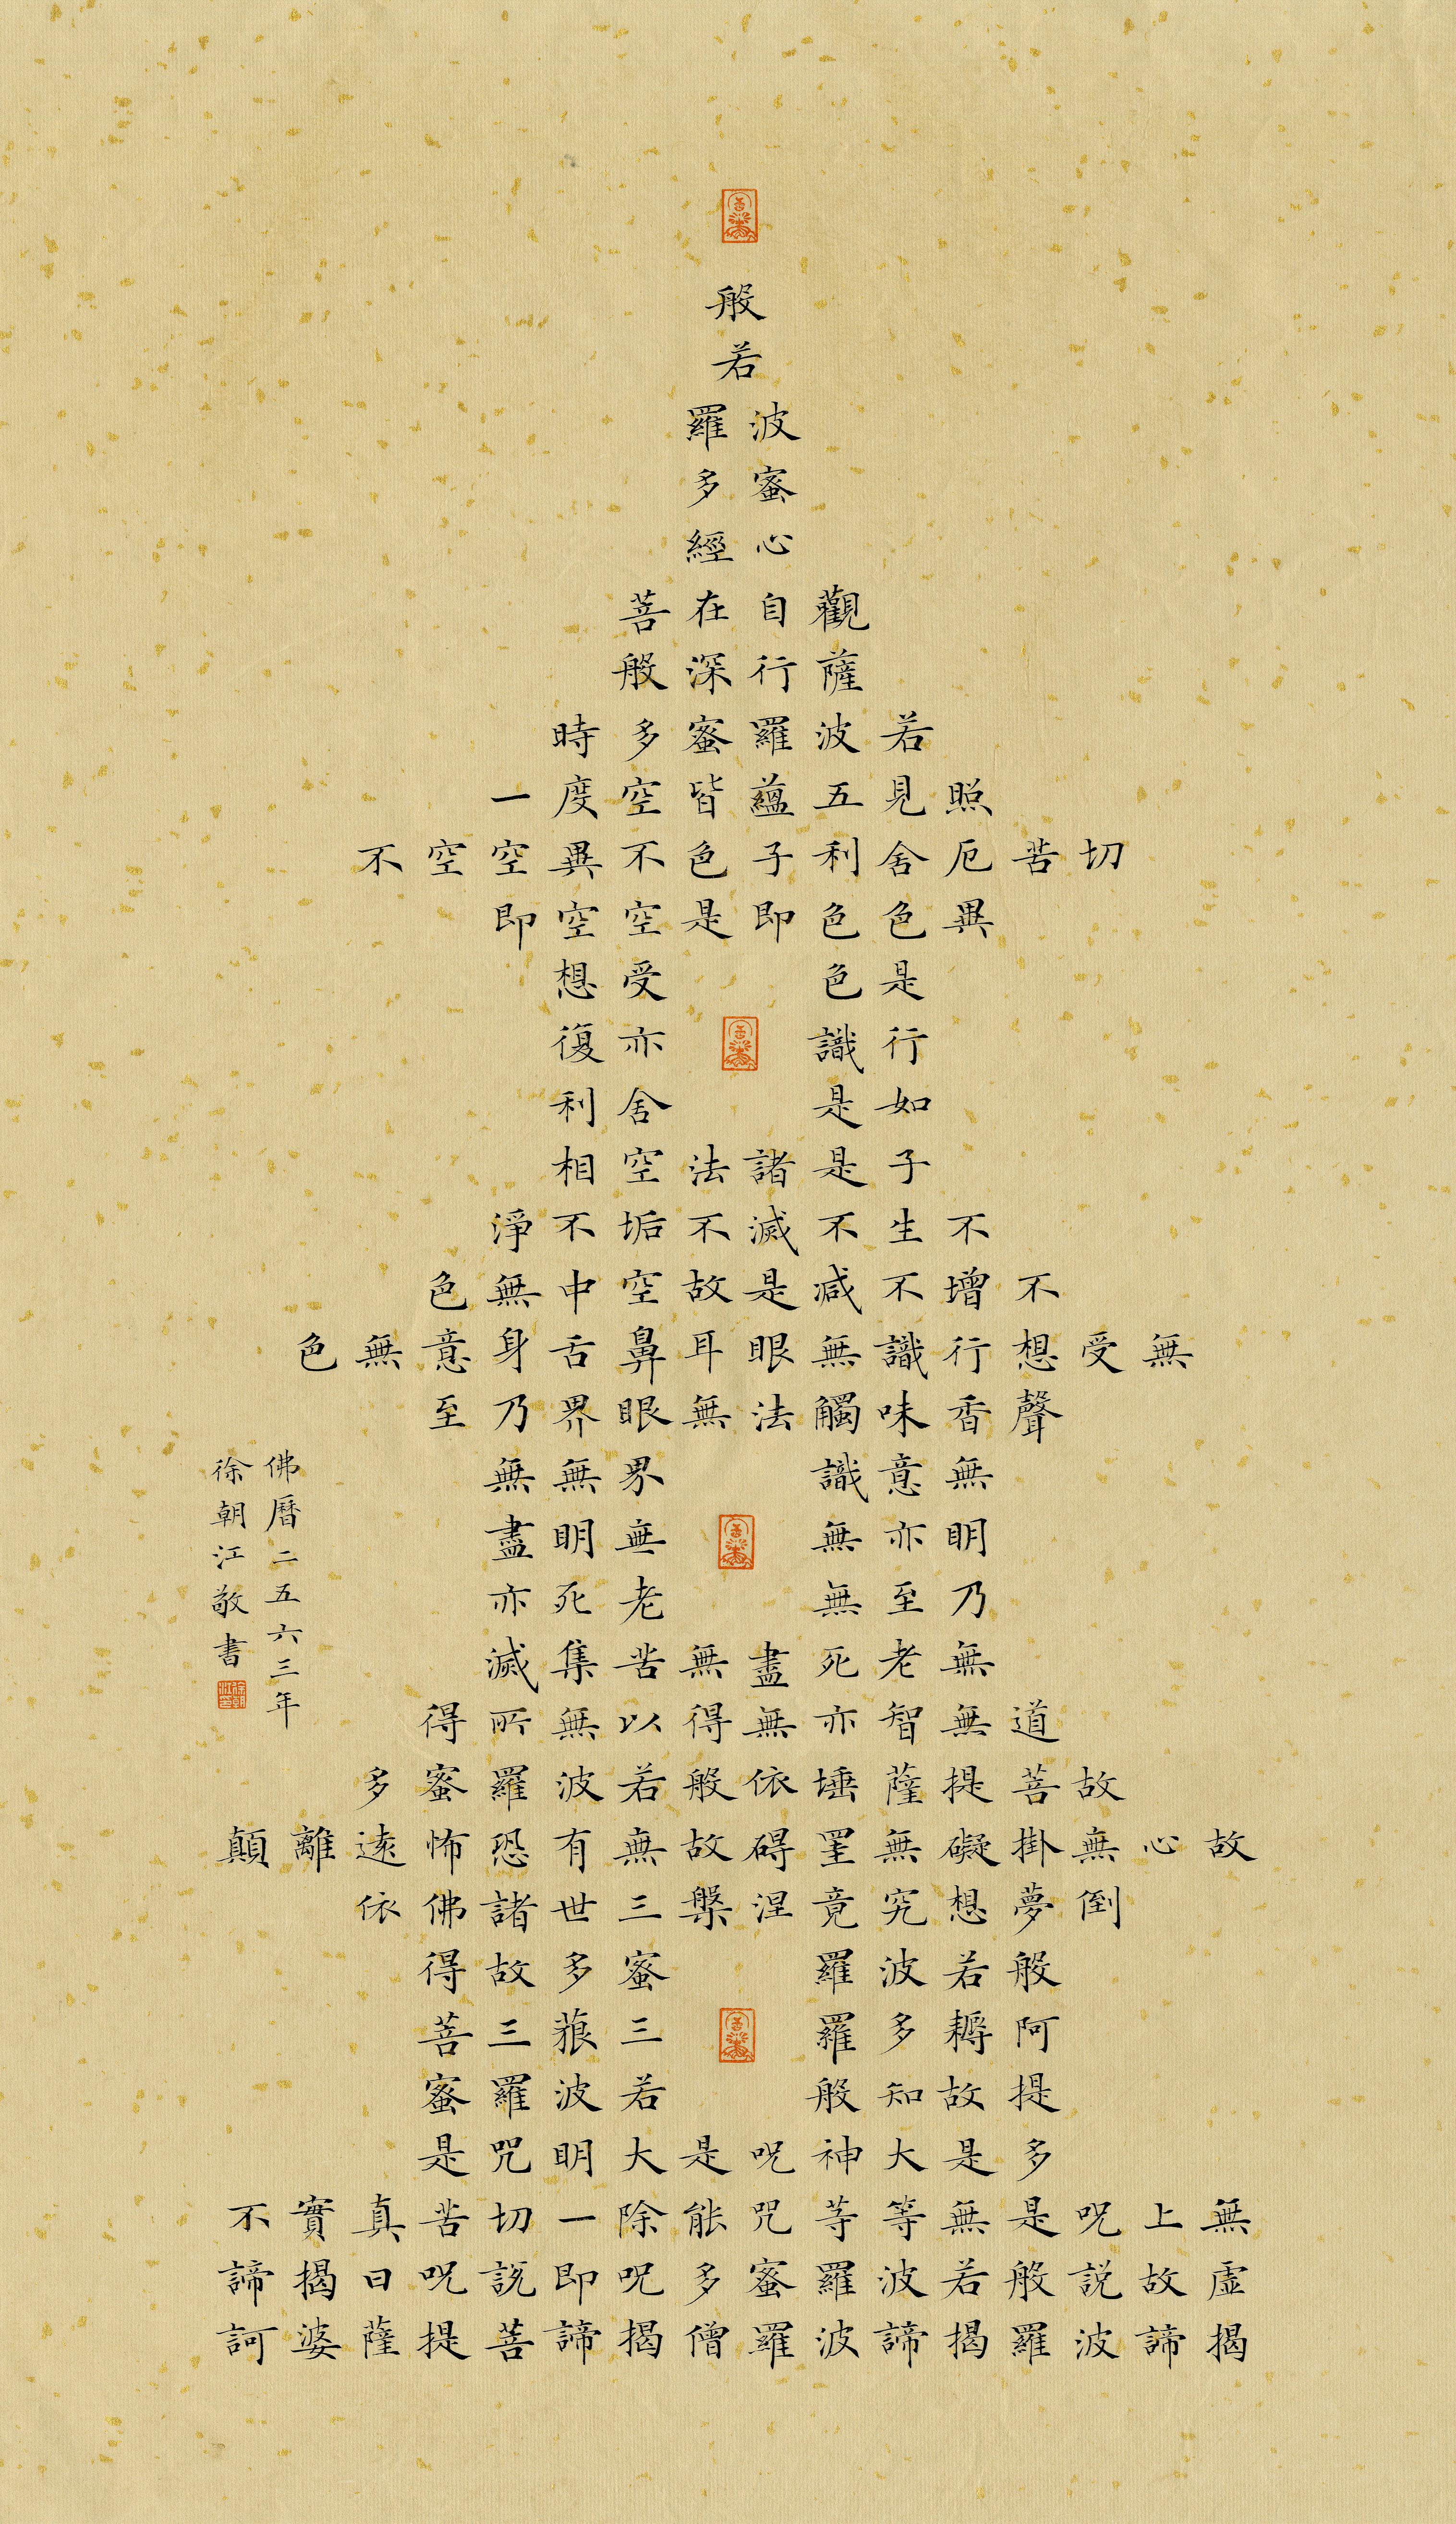 般
若
波羅
蜜多
心經
觀自在菩
薩行深般
若波羅蜜多時
照見五蘊皆空度一
切苦厄舍利子色不異空空不
異色色即是空空即
是色受想
行識亦復
如是舍利
子是諸法空相
不生不滅不垢不淨
不增不減是故空中無色
無受想行識無眼耳鼻舌身意無色
聲香味觸法無眼界乃至
無意識界無無
明亦無無明盡
乃至無老死亦
無老死盡無苦集滅
道無智亦無得以無所得
故菩提薩埵依般若波羅蜜多
故心無掛礙無罣碍故無有恐怖遠離顛
倒夢想究竟涅槃三世諸佛依
般若波羅蜜多故得
阿耨多羅三藐三菩
提故知般若波羅蜜
多是大神呪是大明咒是
無上呪是無等等咒能除一切苦真實不
虛故說般若波羅蜜多呪即說呪曰揭諦
揭諦波羅揭諦波羅僧揭諦菩提薩婆訶
佛曆二五六三年
徐朝江敬書